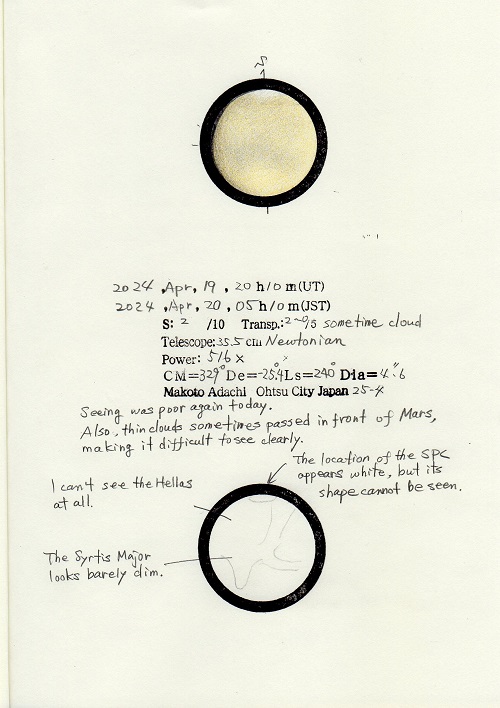 S
2024 , Apr, 19 , 20 h 10 m (UT)
2024 , Apr, 20 , 05 h 10 m (JST)
S: 2 /10 Transp.: 2~0/5 sometime cloud
Telescope: 35.5 cm Newtonian
Power: 516 x
CM=329° De=-25.4° Ls=240° Dia=4".6
Makoto Adachi Ohtsu City Japan 25-4
Seeing was poor again today.
Also, thin clouds sometimes passed in front of Mars,
making it difficult to see clearly.
The location of the SPC
appears white, but its
shape cannot be seen.
I can't see the Hellas
at all.
The Syrtis Major
looks barely dim.